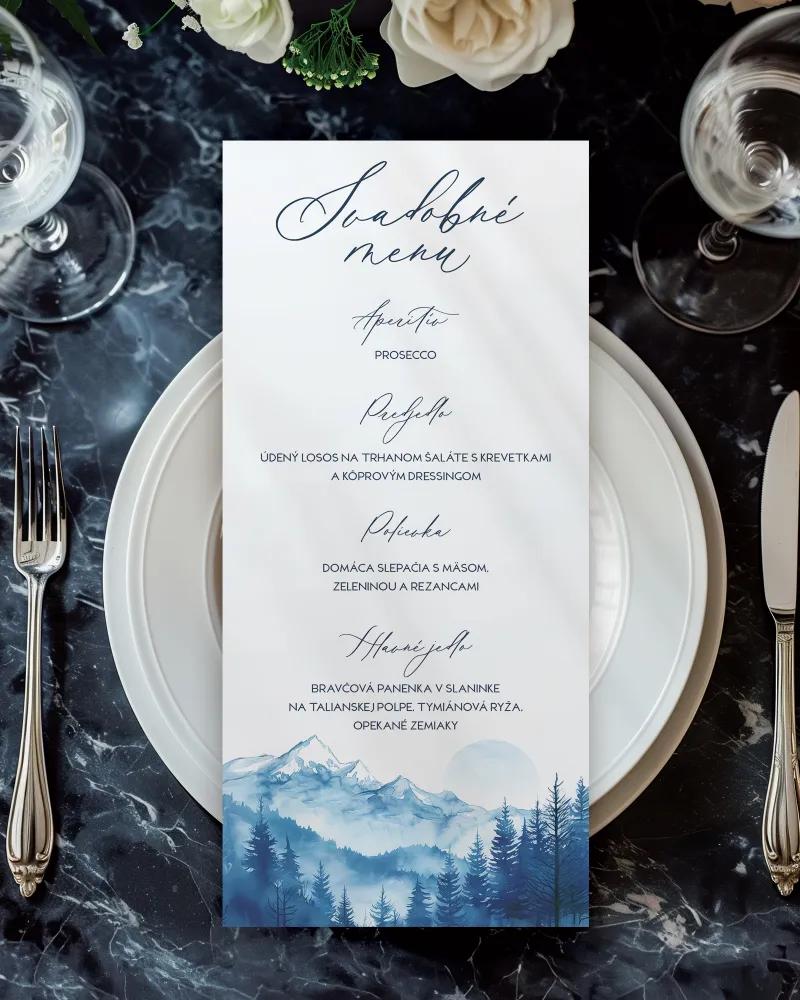 Svadobné
menu
Aperitív
PROSECCO
Predjedlo
ÚDENÝ LOSOS NA TRHANOM ŠALÁTE S KREVETKAMI
A KÔPROVÝM DRESSINGOM
Polievka
DOMÁCA SLEPAČIA S MÄSOM,
ZELENINOU A REZANCAMI
Hlavné jedlo
BRAVČOVÁ PANENKA V SLANINKE
NA TALIANSKEJ POLPE, TYMIÁNOVÁ RYŽA,
OPEKANÉ ZEMIAKY